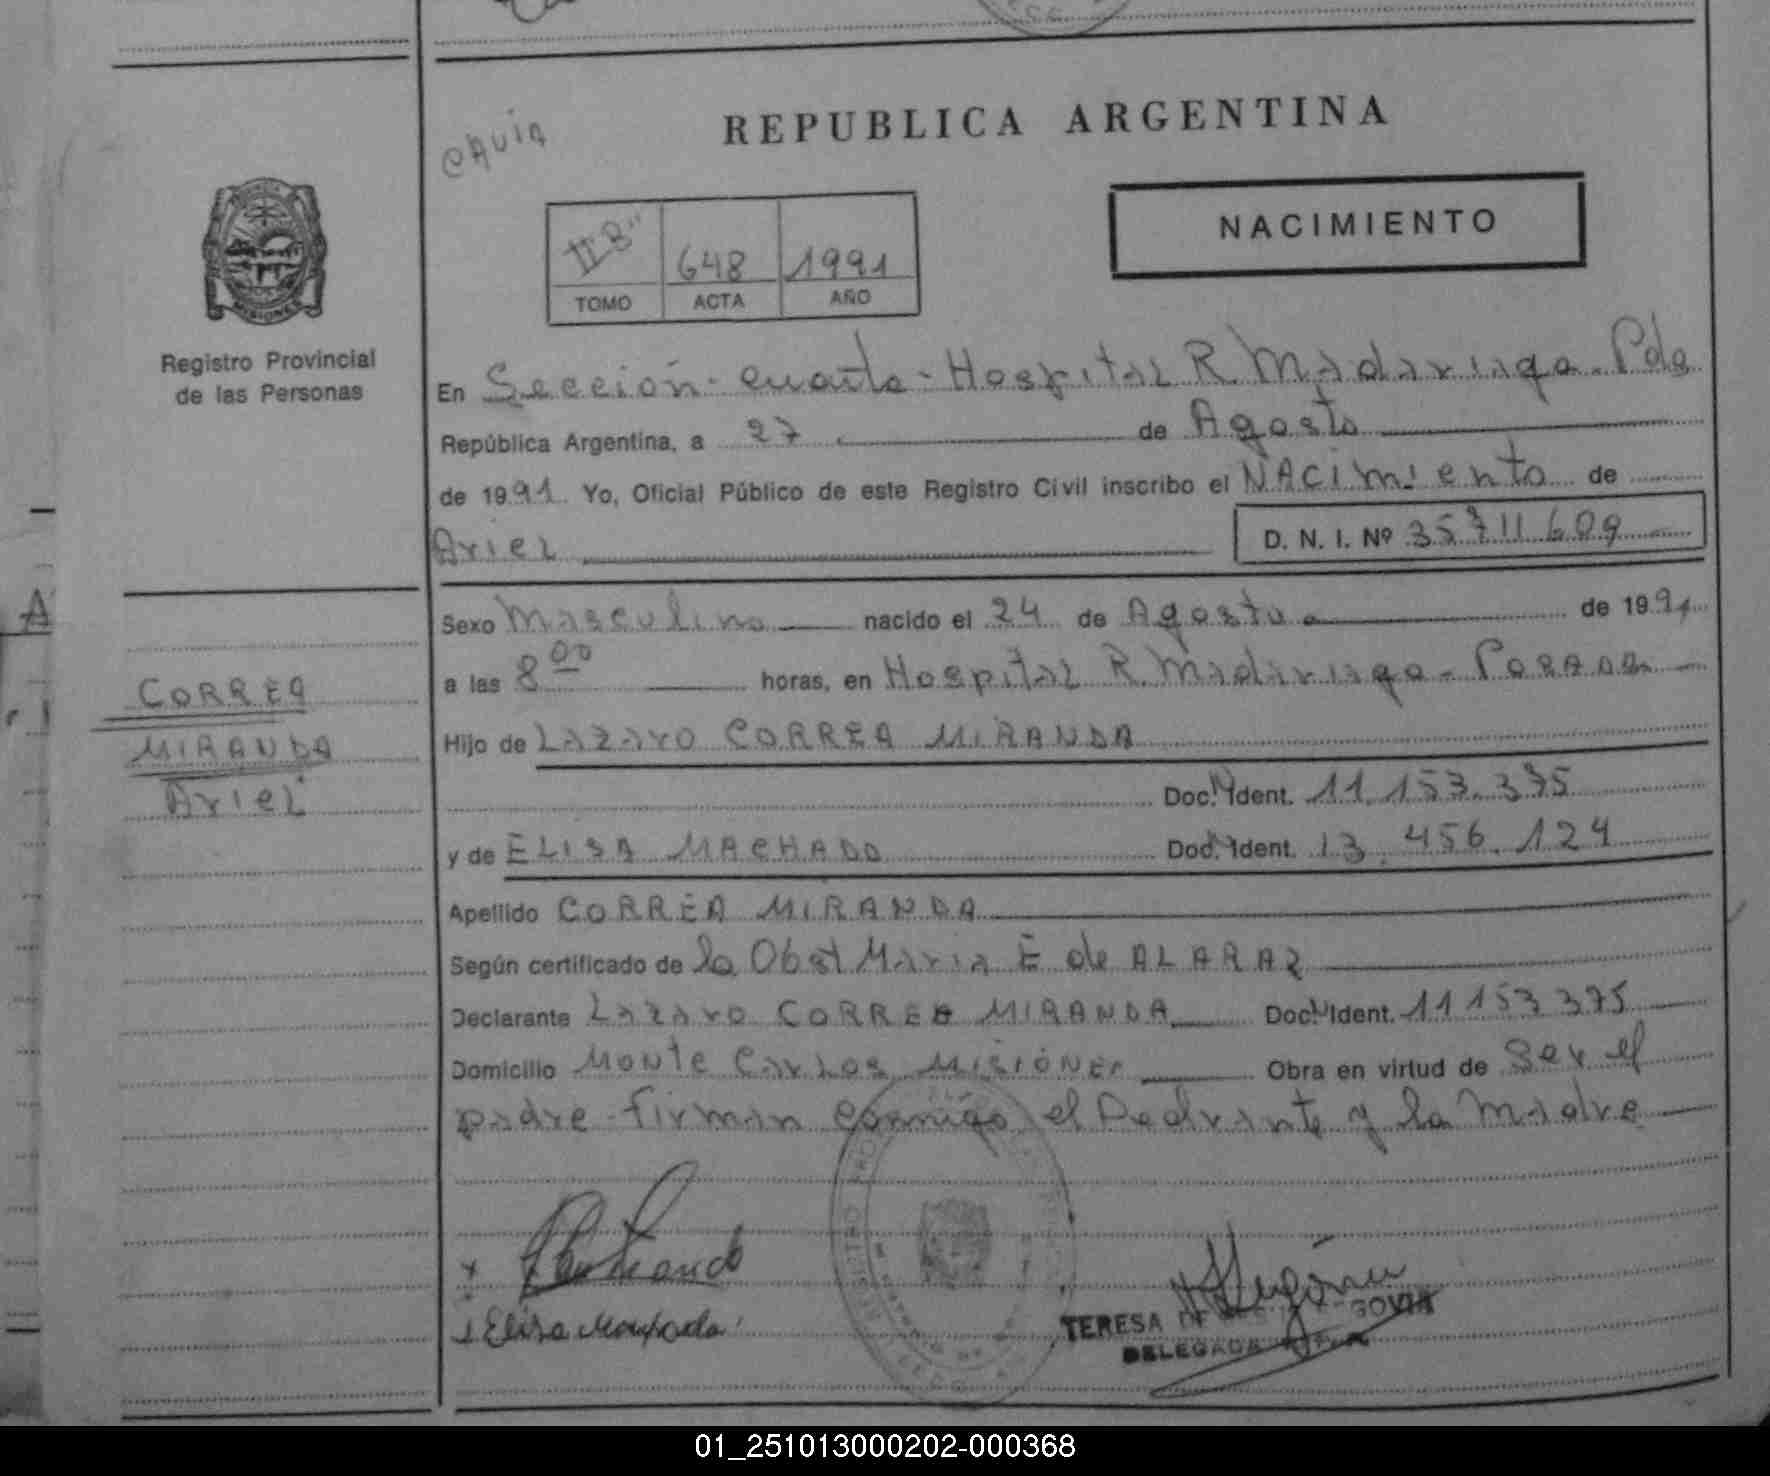 REPUBLICA ARGENTINA
CAVIA
NACIMIENTO
II "B" 648 1991
TOMO ACTA AÑO
MISIONES
Registro Provincial
de las Personas
En Sección cuarta - Hospital R. Madariaga. Pdas
República Argentina, a 27 de Agosto
de 1991 Yo, Oficial Público de este Registro Civil inscribo el NACimiento de
Ariel
D. N. I. Nº 35711609
Sexo Masculino nacido el 24 de Agosto de 1991
a las 8 00 horas, en Hospital R. Madariaga - Posadas
Hijo de Lazaro CORREA MIRANDA
Doc. Ident. 11.153.375
y de ELISA MACHADO Doc. Ident. 13.456.124
Apellido CORREA MIRANDA
Según certificado de la Obst Maria E de ALARAZ
Declarante Lazaro CORREA MIRANDA Doc. Ident. 11153375
Domicilio Monte Carlos Misiones Obra en virtud de Ser el
padre firman conmigo el Declrante y la Madre
CORREA
MIRANDA
Ariel
Elisa Machado
TERESA DE GOVIA
DELEGADA
01_251013000202-000368